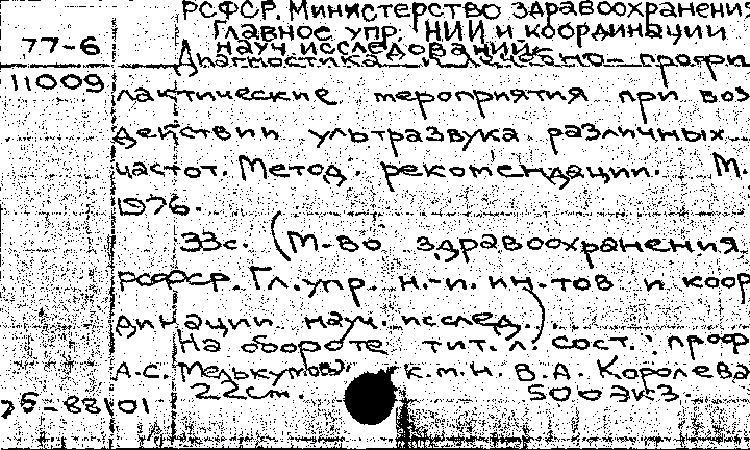 РСФСР. Министерство здравоохранения
Главное упр. НИИ и координации
77-6
науч. исследований.
Диагностика и лечебно-профи
11009
лактические мероприятия при воз
действии ультразвука различных
частот. Метод. рекомендации. М.
1976.
33с. (М-во здравоохранения
РСФСР. Гл. упр. н.-и. ин-тов и коор
динации науч. исслед.).
На обороте тит. л. сост.: проф
А.С. к.т.н. В.А. Королева
22см. 500экз.
76-88101